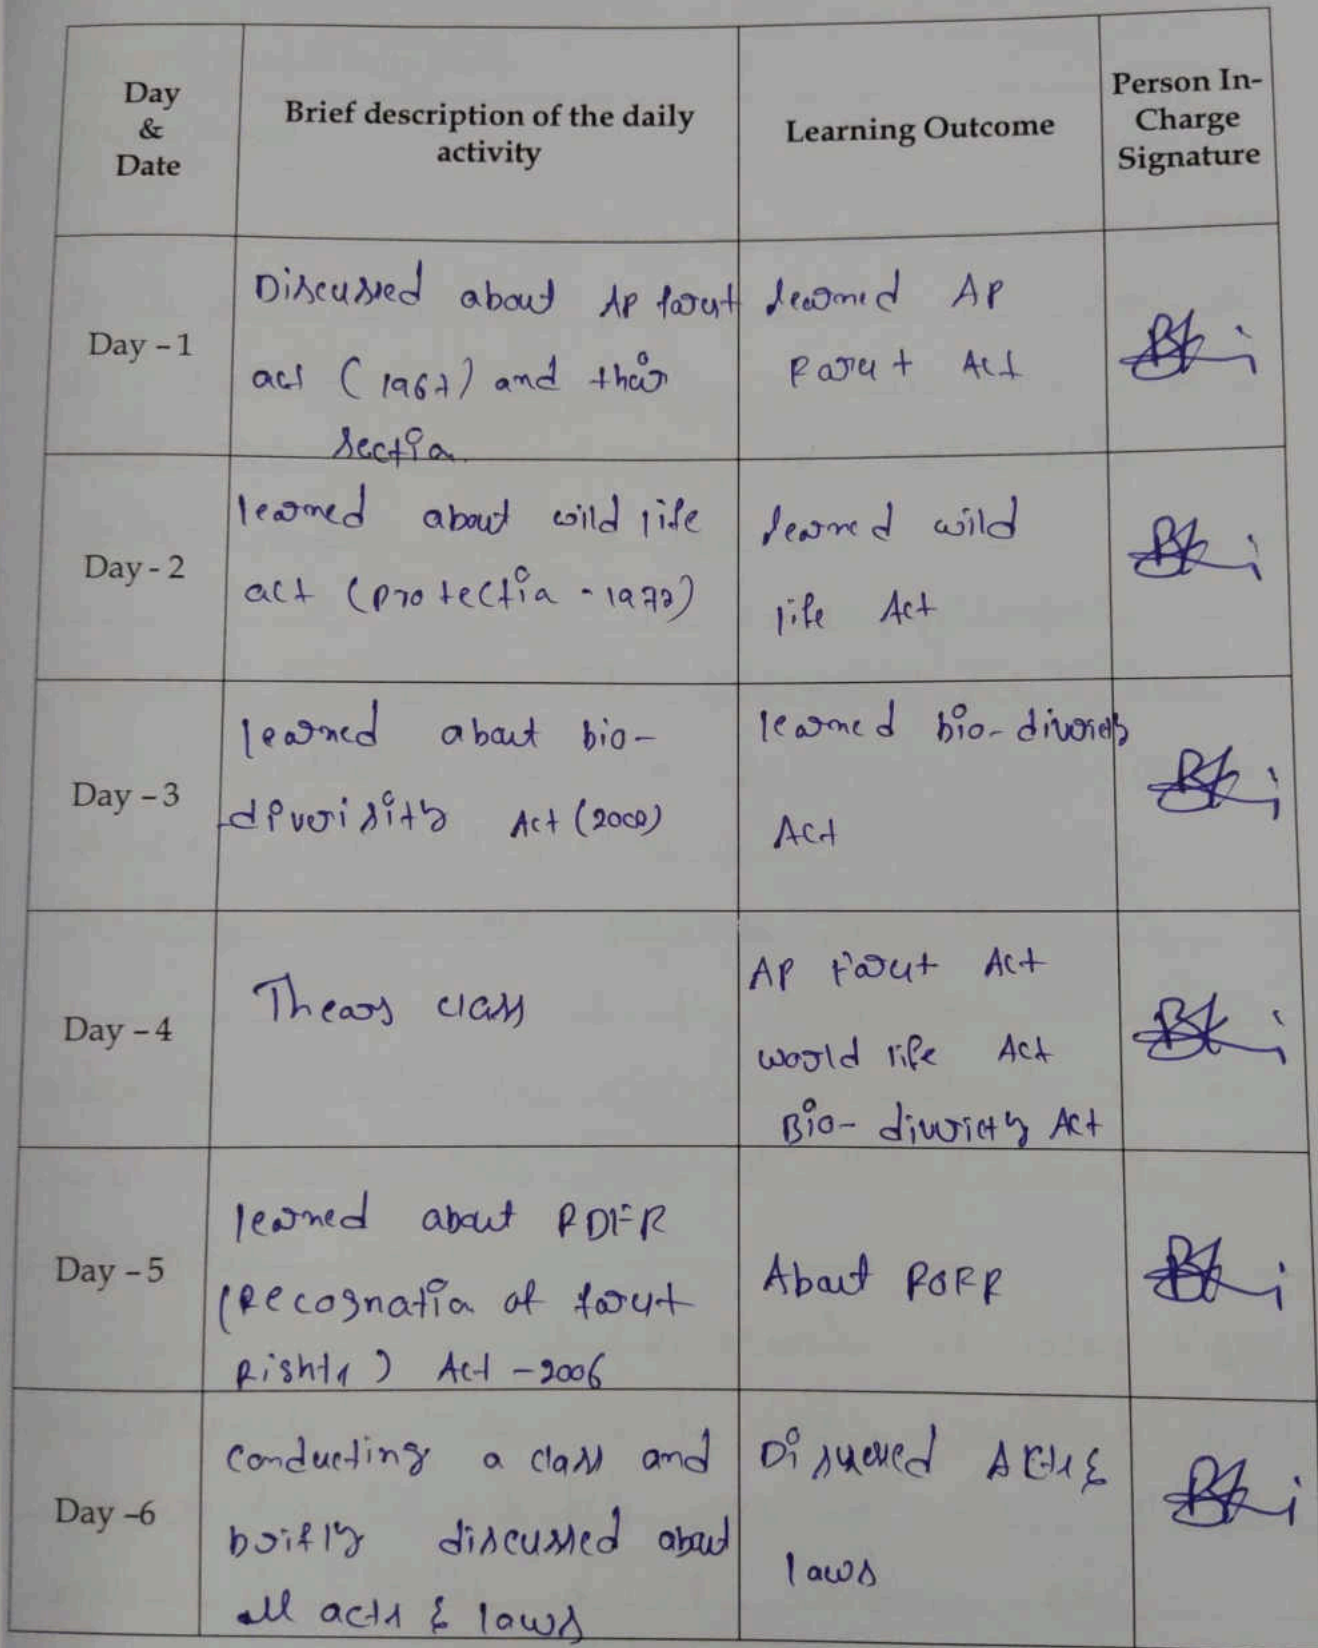 Day
&
Date
Brief description of the daily
activity
Learning Outcome
Person In-
Charge
Signature
Day - 1
Discussed about AP forest
act (1967) and their
section
learned AP
Forest Act
Day - 2
learned about wild life
act (protection - 1972)
learned wild
life Act
Day - 3
learned about bio-
diverisity Act (2002)
learned bio-diversity
Act
Day - 4
Theory class
AP Forest Act
world life Act
Bio- diversity Act
Day - 5
learned about ROFR
(Recognation of forest
Rights) Act - 2006
About ROFR
Day -6
conducting a class and
boifly discussed about
all acts & laws
Discussed Acts &
laws